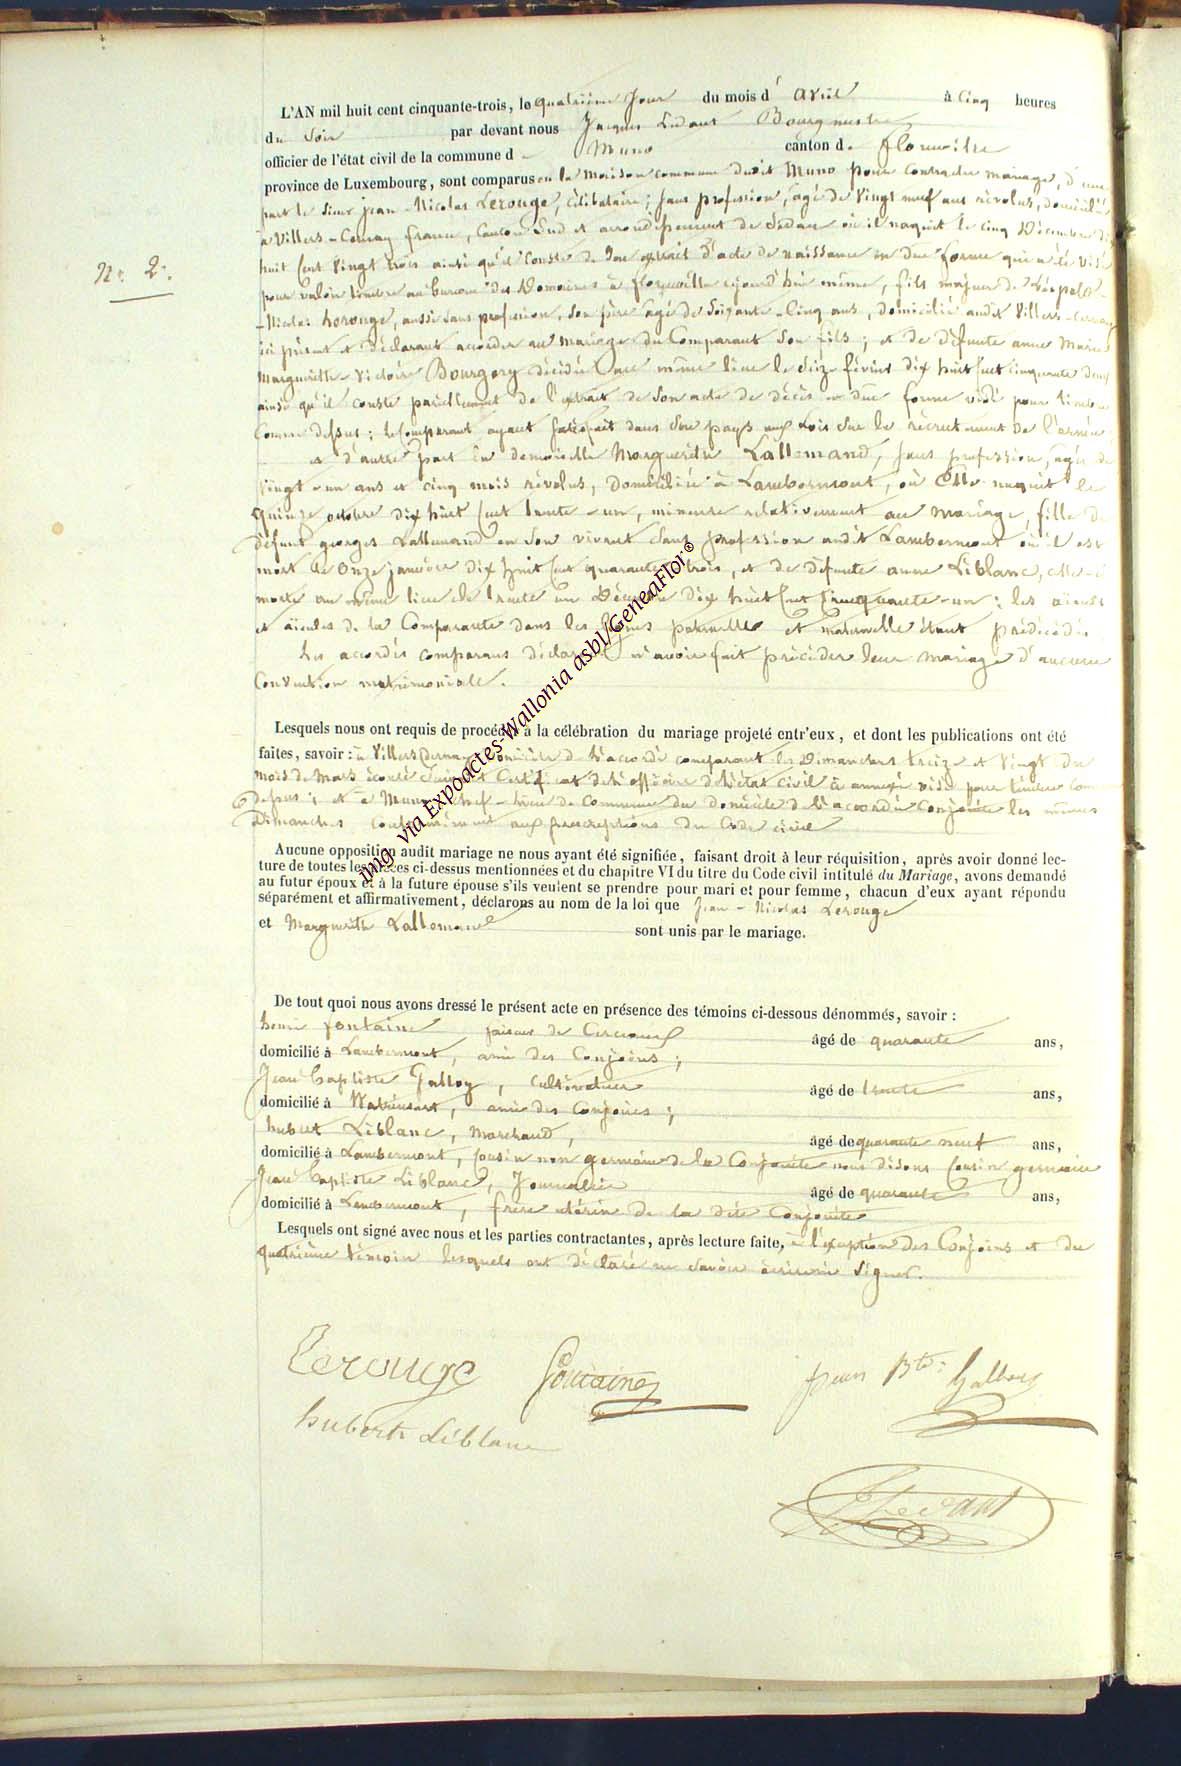 L'AN mil huit cent cinquante-trois, le quatrième jour du mois d' avril à cinq heures
du soir par devant nous Jacques Ledant Bourgmestre,
officier de l'état civil de la commune d Muno canton d. florenville
province de Luxembourg, sont comparus en la maison commune dudit Muno pour contracter mariage, d'une
part le sieur jean-Nicolas Lerouge, célibataire, sans profession, agé de vingt neuf ans révolus, domicilié
à Villers-Cernay france, canton sud et arrondissement de Sedan où il naquit le cinq Décembre dix
N° 2.
huit cent vingt trois ainsi qu'il conste de son extrait d'acte de naissance en due forme qui a été visé
pour valoir timbre au bureau des Domaines à florenville cejourd'hui même, fils majeur de Léopold-
-Nicolas Lerouge, aussi sans profession, son père agé de soixante-cinq ans, domicilié audit Villers-Cernay
ici présent et déclarant accorder au mariage du Comparant son fils; et de défunte anne Marie
Marguerithe-Victoire Bourgery décédée au même lieu le seize février dix huit cent cinquante deux
ainsi qu'il conste pareillement de l'extrait de son acte de décès en due forme visé pour timbre
comme dessus; le comparant ayant satisfait dans son pays aux lois sur le recrutement de l'armée;
et d'autre part la demoiselle Marguerithe Lallemand, sans profession, agée de
vingt-un ans et cinq mois révolus, domiciliée à Lambermont, où Elle naquit le
quinze octobre dix huit cent trente-un, mineure relativement au mariage, fille de
défunt georges Lallemand en son vivant sans profession audit Lambermont où il est
mort le onze janvier dix huit cent quarante trois, et de défunte anne Léblanc, elle-
morte au même lieu le trente un Décembre dix huit cent cinquante-un; les aïeuls
et aïeules de la Comparante dans les lignes paternelle et maternelle étant prédécédés
Les accordés comparans déclarent n'avoir fait précéder leur mariage d'aucune
Convention matrimoniale.
Lesquels nous ont requis de procéder à la célébration du mariage projeté entr'eux, et dont les publications ont été
faites, savoir: à Villers Cernay domicile de l'accordé comparant les Dimanches treize et vingt du
mois de Mars écoulé suivant Certificat de l'officier d'état civil ci annexé visé pour timbre com
dessus; et à Muno chef-lieu de commune du domicile de l'accordée Conjointe les mêmes
Dimanches conformément aux prescriptions du Code civil
Aucune opposition audit mariage ne nous ayant été signifiée, faisant droit à leur réquisition, après avoir donné lec-
ture de toutes les pièces ci-dessus mentionnées et du chapitre VI du titre du Code civil intitulé du Mariage, avons demandé
au futur époux et à la future épouse s'ils veulent se prendre pour mari et pour femme, chacun d'eux ayant répondu
séparément et affirmativement, déclarons au nom de la loi que Jean-Nicolas Lerouge
et Marguerithe Lallemand sont unis par le mariage.
De tout quoi nous avons dressé le présent acte en présence des témoins ci-dessous dénommés, savoir:
henri fontaine faiseur de Cerceaux âgé de quarante ans,
domicilié à Lambermont, ami des Conjoins;
Jean baptiste Galloy, Cultivateur âgé de trente ans,
domicilié à Watrinsart, ami des Conjoins;
hubert Léblanc, marchand, âgé de quarante neuf ans,
domicilié à Lambermont, cousin non germain de la Conjointe nous disons cousin germain
Jean baptiste Léblanc, Journalier âgé de quarante ans,
domicilié à Lambermont, frère utérin de la dite Conjointe
Lesquels ont signé avec nous et les parties contractantes, après lecture faite, à l'exception des Conjoins et du
quatrième témoin lesquels ont déclaré ne savoir écrire ni signer.
Lerouge fontaine Jean Bte: Galloy
hubert Léblanc
J Ledant
img via Expoactes-Wallonia asbl/GeneaFlor©